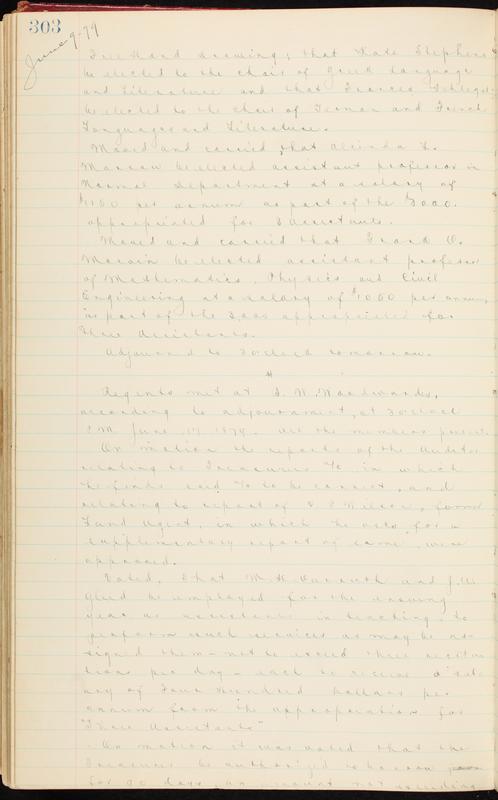 303
June 9-79
Free Hand drawing; that Kate Stephens
be elected to the chair of Greek Language
and Literature and that Frances Schlegel
be elected to the chair of German and French
Languages and Literature.
Moved and carried that
be elected assistant professor in
Normal Department at a salary of
per annum as part of the $3000.
appropriated for 3 assistants.
Moved and carried that Frank O.
Marvin be elected assistant professor
of Mathematics, Physics and Civil
Engineering at a salary of $1000 per annum,
as part of the 3000 appropriated for
three Assistants.
Adjourned to 3 o'clock tomorrow.
Regents met at S. W. Woodwards,
according to adjournment, at 3 o'clock
P.M. June 1879. All the members present.
On motion the reports of the Auditor
relating to Treasurers in which
he finds said to be correct, and
relating to report of Wilson, former
Fund Agent, in which he asks for a
supplementary report of same, were
approved.
Voted, that and J.W.
Gleed be employed for the ensuing
year as assistants in teaching, to
perform such services as may be as-
signed them - not to exceed three recita-
tions per day - each to receive a sal-
ary of Four Hundred Dollars per
annum from the appropriation for
"Three Assistants"
On motion it was voted that the
Treasurer be authorized to borrow
for 90 days, an amount not exceeding